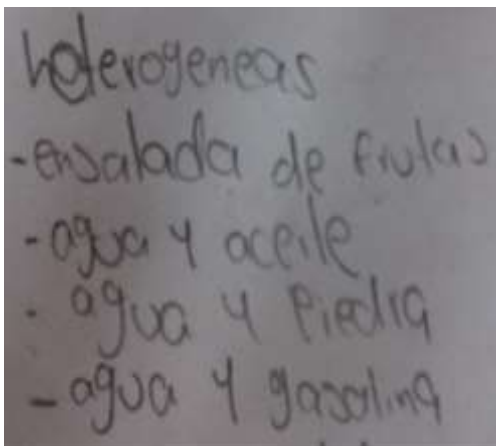 heterogeneas
- ensalada de frutas
- agua y aceite
- agua y Piedra
- agua y gasolina